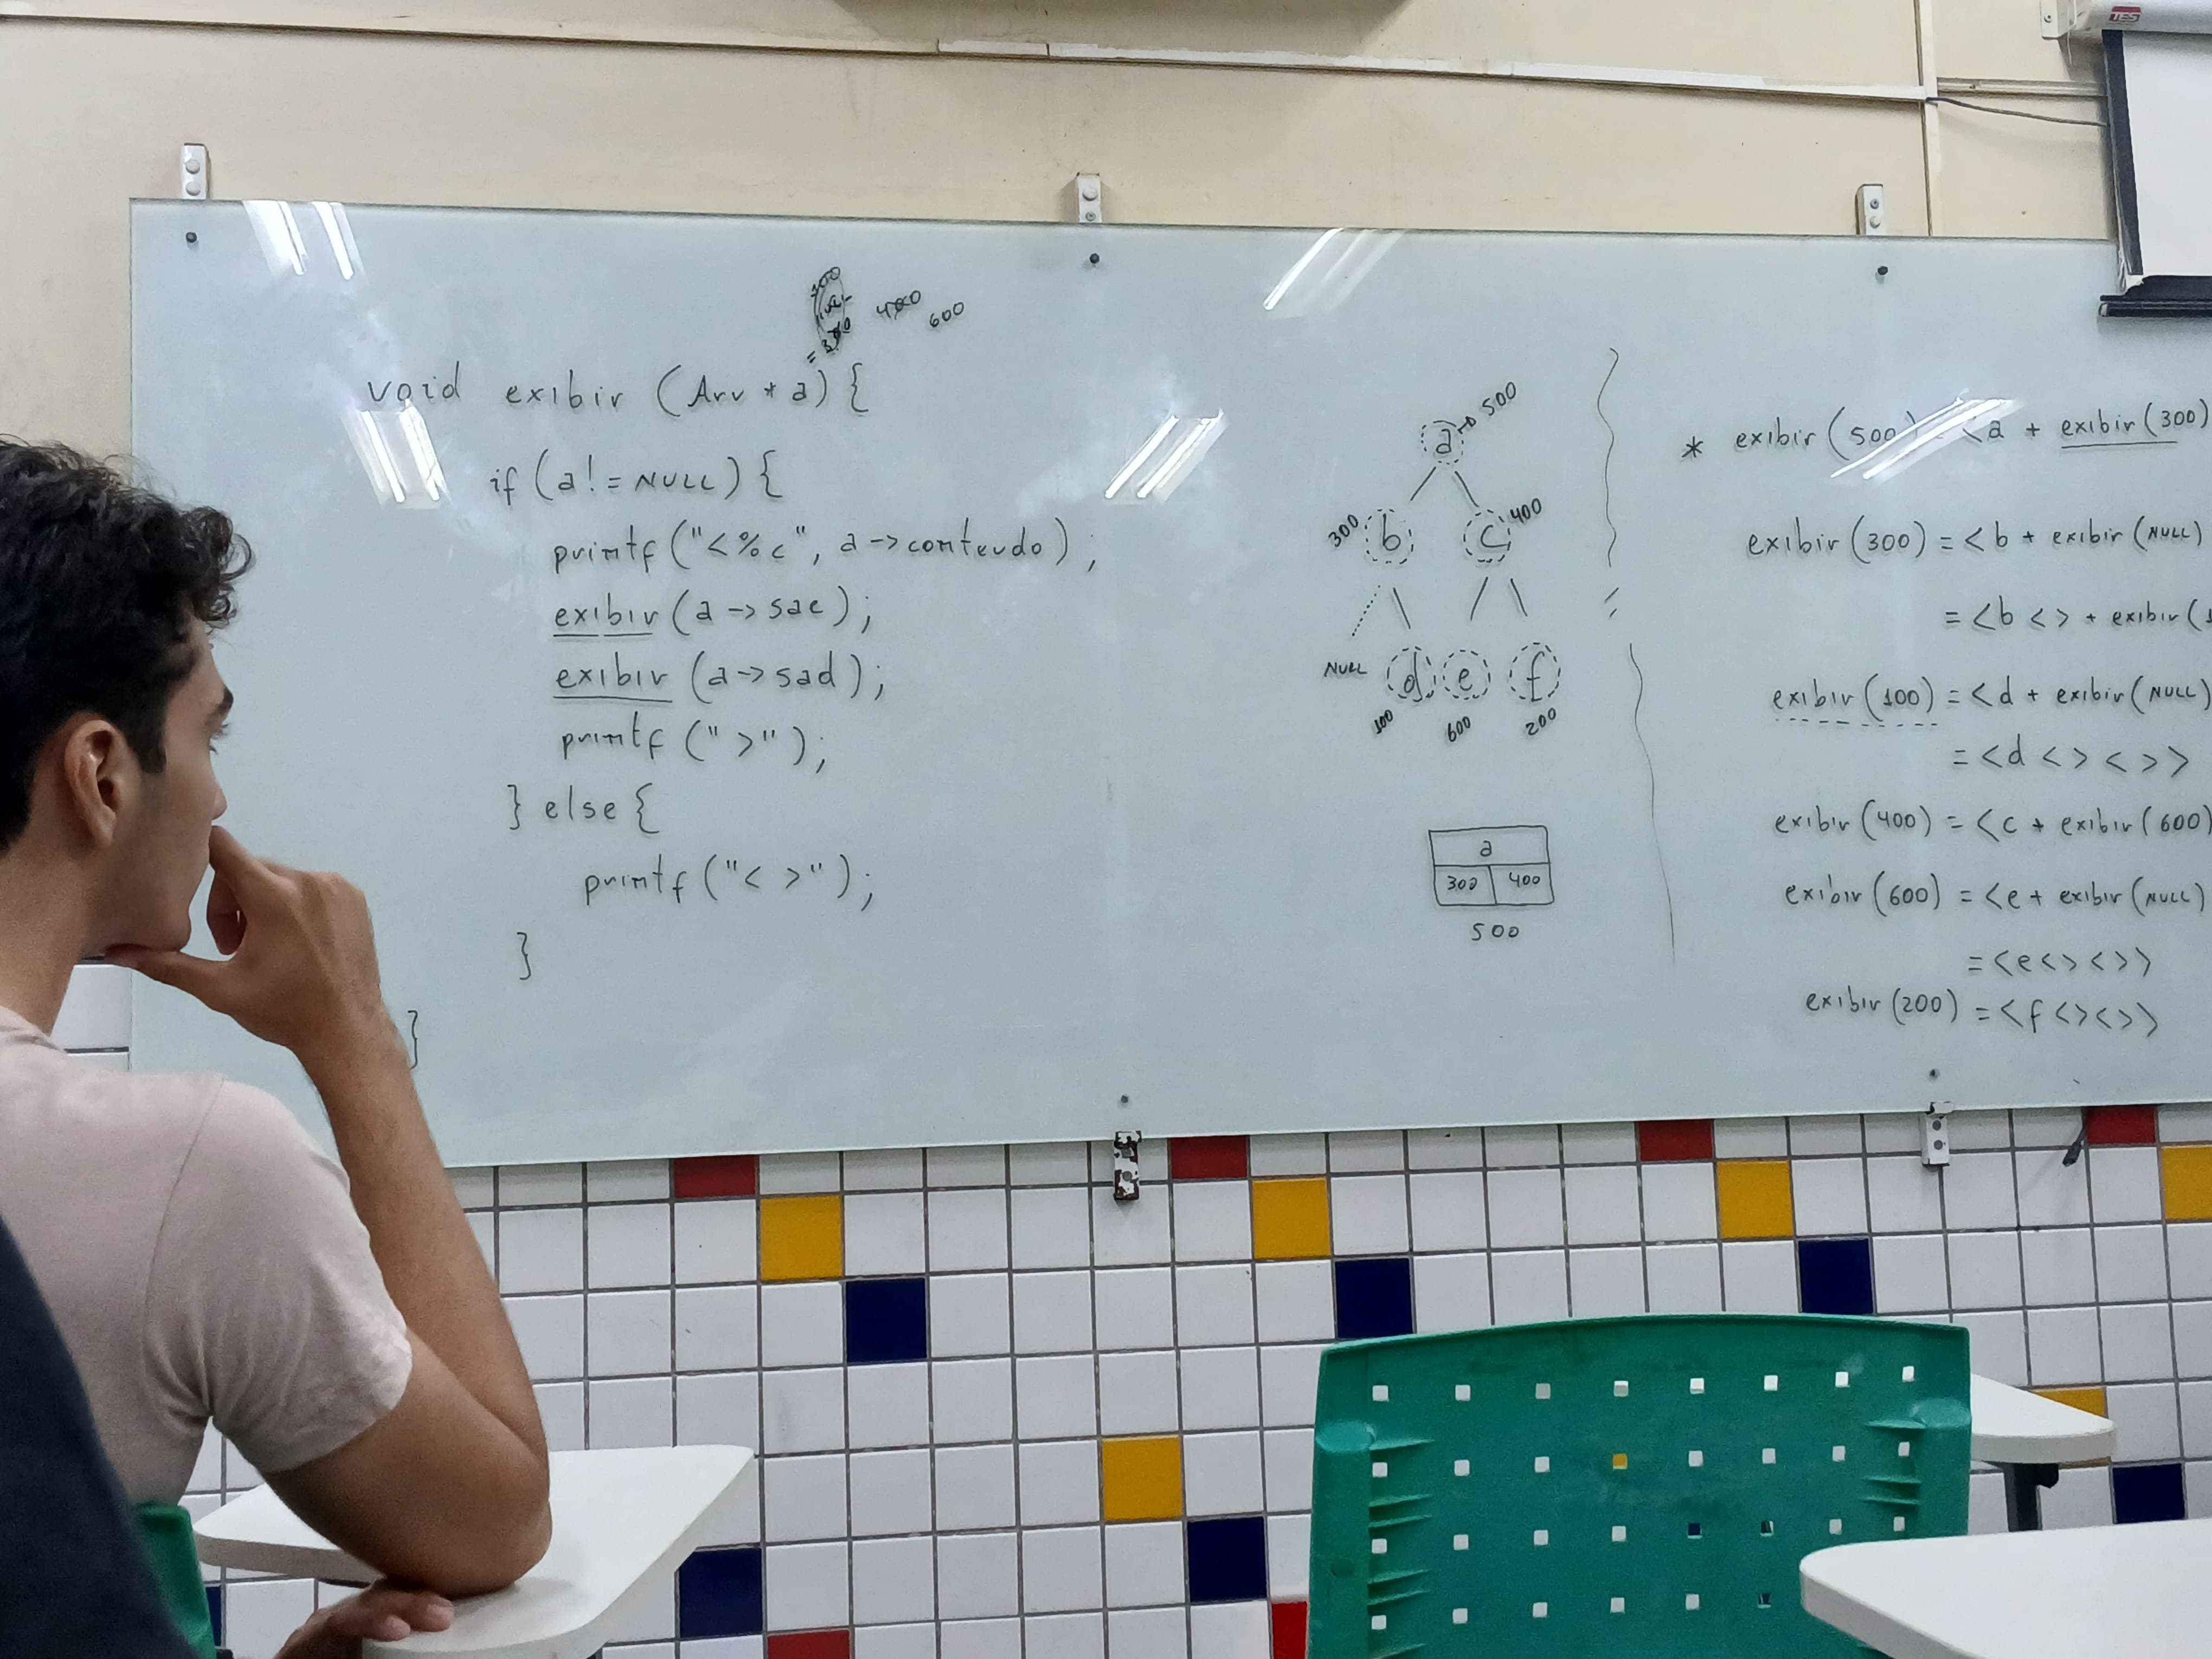 TES
400 600
void exibir (Arv * a) {
if (a != NULL) {
printf ("<%c", a->conteudo) ;
exibir (a -> sae) ;
exibir (a -> sad) ;
printf (" >") ;
} else {
printf ("< >") ;
}
}
a -> 500
300 b c 400
NULL d e f
100 600 200
a
300 400
500
* exibir (500) = <a + exibir (300)
exibir (300) = <b + exibir (NULL)
= <b < > + exibir (
exibir (100) = <d + exibir (NULL)
= <d < > < > >
exibir (400) = <c + exibir (600)
exibir (600) = <e + exibir (NULL)
= <e < > < > >
exibir (200) = <f < > < > >